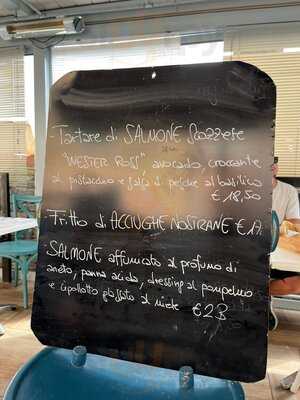 -Tartare di SALMONE Scozzese
"WESTER ROSS", avocado, croccante
al pistacchio e salsa di pesche al basilico
€ 18,50
-Fritto di ACCIUGHE NOSTRANE € 17
-SALMONE affumicato al profumo di
aneto, panna acida, dressing al pompelmo
e cipollotto glassato al miele € 23